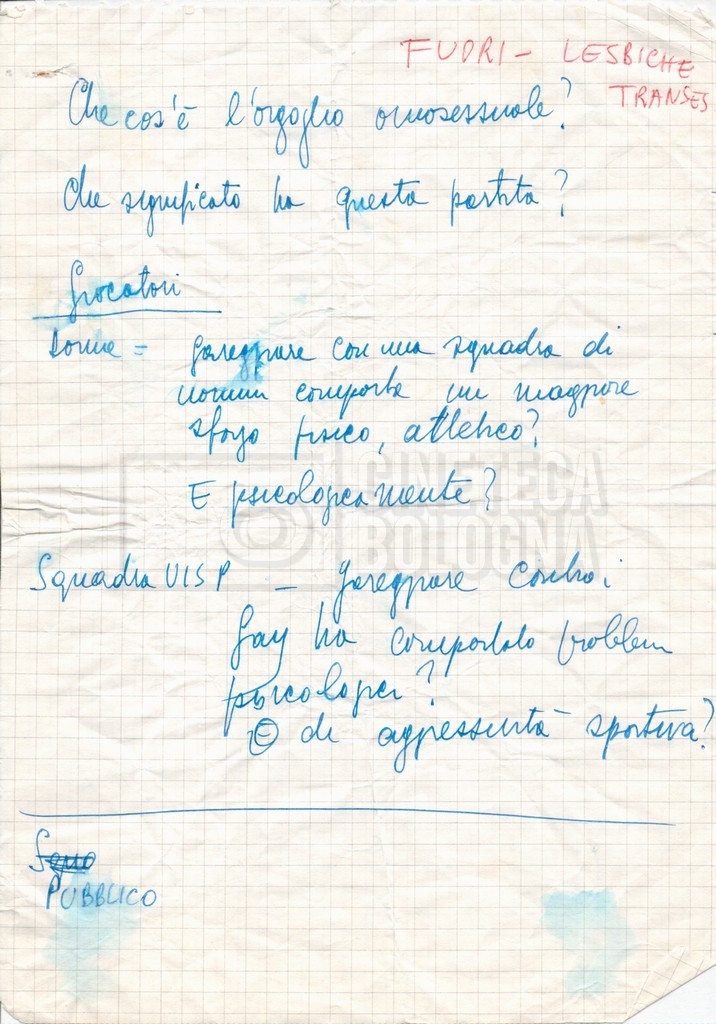 FUORI - LESBICHE
TRANSES
Che cos'è l'orgoglio omosessuale?
Che significato ha questa partita?
Giocatori
donne = Gareggiare con una squadra di
uomini comporta un maggiore
sforzo fisico, atletico?
E psicologicamente?
CINETECA
BOLOGNA
Squadra UISP - Gareggiare contro i
Gay ha comportato problemi
psicologici?
O di aggressività sportiva?
Squa
PUBBLICO